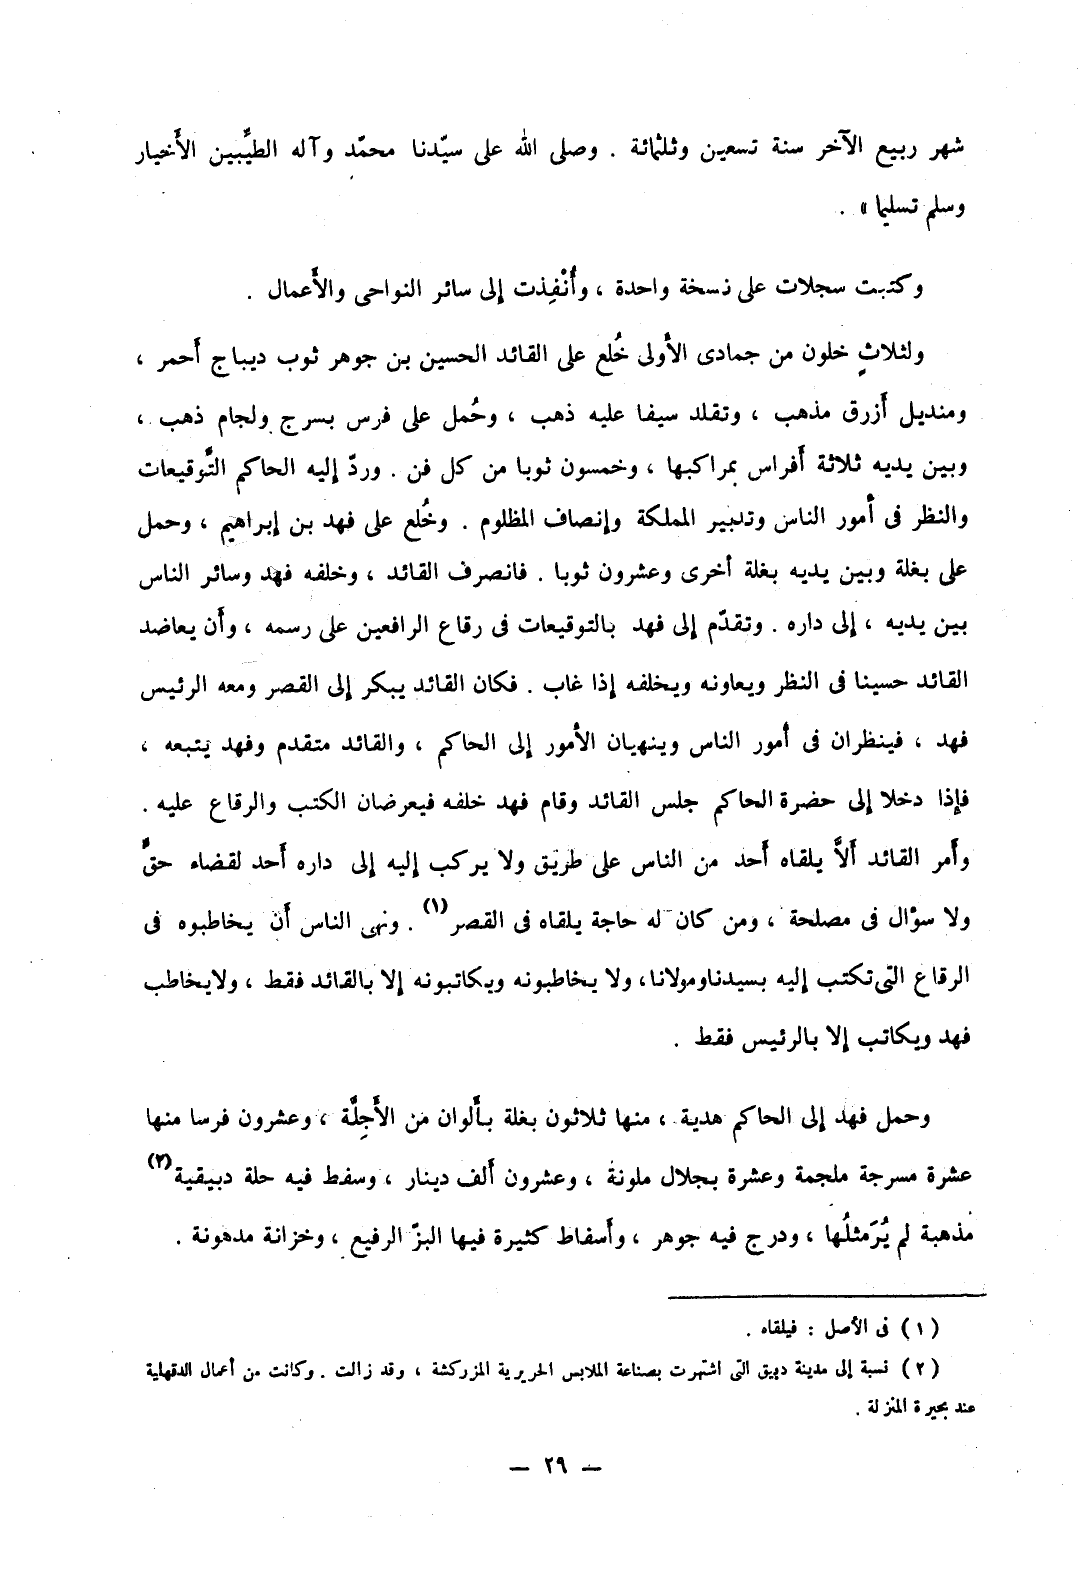 شهر ربيع الآخر سنة تسعين وثلثمائة . وصلى الله على سيّدنا محمّد وآله الطيِّبين الأَخيار
وسلم تسليما » .
وكتبت سجلات على نسخة واحدة ، وأُنْفِذت إلى سائر النواحى والأَعمال .
ولثلاثٍ خلون من جمادى الأولى خُلع على القائد الحسين بن جوهر ثوب ديباج أَحمر ،
ومنديل أَزرق مذهب ، وتقلد سيفا عليه ذهب ، وحُمل على فرس بسرج ولجام ذهب ،
وبين يديه ثلاثة أَفراس بمراكبها ، وخمسون ثوبا من كل فن . وردّ إليه الحاكم التَّوقيعات
والنظر فى أمور الناس وتدبير المملكة وإنصاف المظلوم . وخُلع على فهد بن إبراهيم ، وحمل
على بغلة وبين يديه بغلة أخرى وعشرون ثوبا . فانصرف القائد ، وخلفه فهد وسائر الناس
بين يديه ، إلى داره . وتقدّم إلى فهد بالتوقيعات فى رقاع الرافعين على رسمه ، وأَن يعاضد
القائد حسينا فى النظر ويعاونه ويخلفه إذا غاب . فكان القائد يبكر إلى القصر ومعه الرئيس
فهد ، فينظران فى أمور الناس وينهيان الأمور إلى الحاكم ، والقائد متقدم وفهد يتبعه ،
فإذا دخلا إلى حضرة الحاكم جلس القائد وقام فهد خلفه فيعرضان الكتب والرقاع عليه .
وأَمر القائد أَلاَّ يلقاه أَحد من الناس على طريق ولا يركب إليه إلى داره أَحد لقضاء حقٍّ
ولا سؤال فى مصلحة ، ومن كان له حاجة يلقاه فى القصر(١) . ونهى الناس أَن يخاطبوه فى
الرقاع التى تكتب إليه بسيدنا ومولانا ، ولا يخاطبونه ويكاتبونه إلا بالقائد فقط ، ولا يخاطب
فهد ويكاتب إلا بالرئيس فقط .
وحمل فهد إلى الحاكم هدية ، منها ثلاثون بغلة بأَلوان من الأَجِلَّة ، وعشرون فرسا منها
عشرة مسرجة ملجمة وعشرة بجلال ملونة ، وعشرون أَلف دينار ، وسفط فيه حلة دبيقية(٢)
مذهبة لم يُرَ مثلُها ، ودرج فيه جوهر ، وأَسفاط كثيرة فيها البزّ الرفيع ، وخزانة مدهونة .
(١) فى الأصل : فيلقاه .
(٢) نسبة إلى مدينة دبيق التى اشتهرت بصناعة الملابس الحريرية المزركشة ، وقد زالت . وكانت من أعمال الدقهلية
عند بحيرة المنزلة .
— ٢٩ —